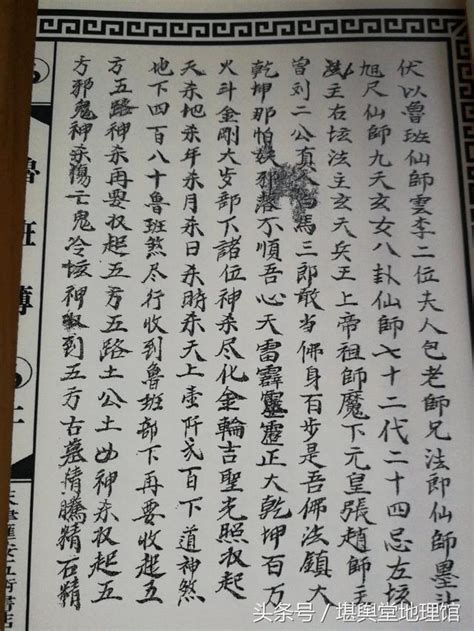 伏以魯班仙師雲李二位夫人包老師兄法郎仙師墨斗
旭尺仙師九天玄女八卦仙師七十二代二十四忌左垓
法主右垓法主玄天兵王上帝祖師魔下元皇張趙師主
宫刘二公真馬三郎敢当佛身百步是吾佛法鎮大
乾坤那怕妖邪落不順吾心天雷霹靂靈正大乾坤百万
火斗金剛大步部下諸位神杀尽化金輪吉聖光照权起
天杀地杀年杀月杀日杀時杀天上壶阡弍百下道神煞
地下四百八十魯班煞尽行收到魯班部下再要收起五
方五路神杀再要权起五方五路土公土母神杀权起五
方邪鬼神杀傷亡鬼冷垓神权到五方古墓精騰精石精
魯班簿
五術書店
头条号／堪舆堂地理馆